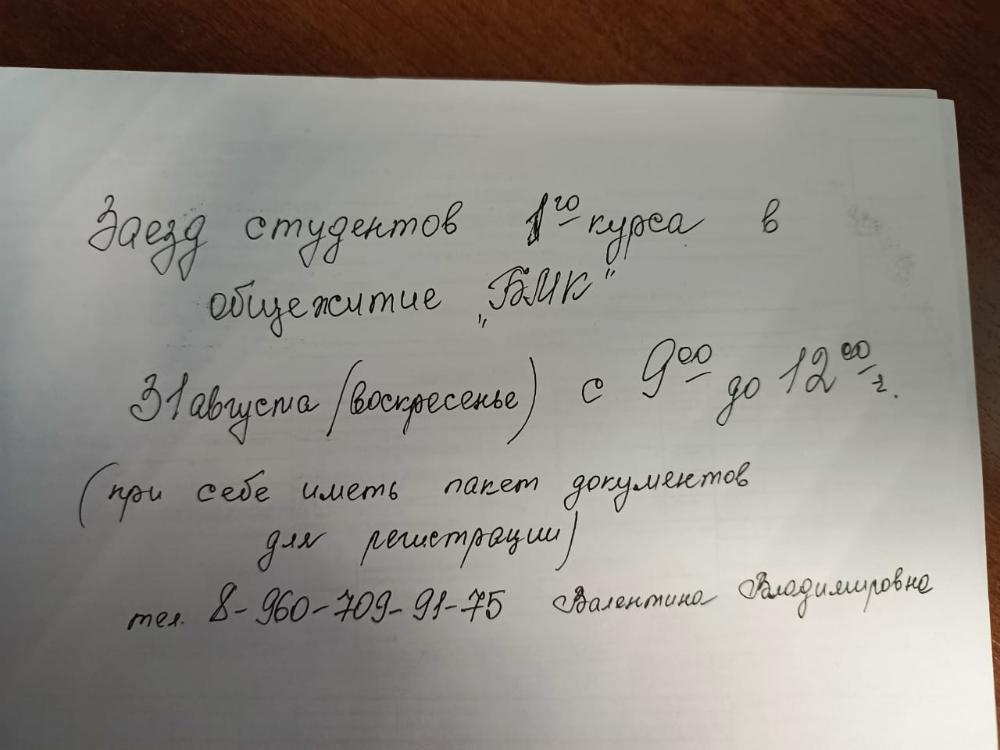 Заезд студентов 1го курса в
общежитие „БМК"
31 августа (воскресенье) с 9 00 до 12 00 ч.
(при себе иметь пакет документов
для регистрации)
тел. 8-960-709-91-75 Валентина Владимировна